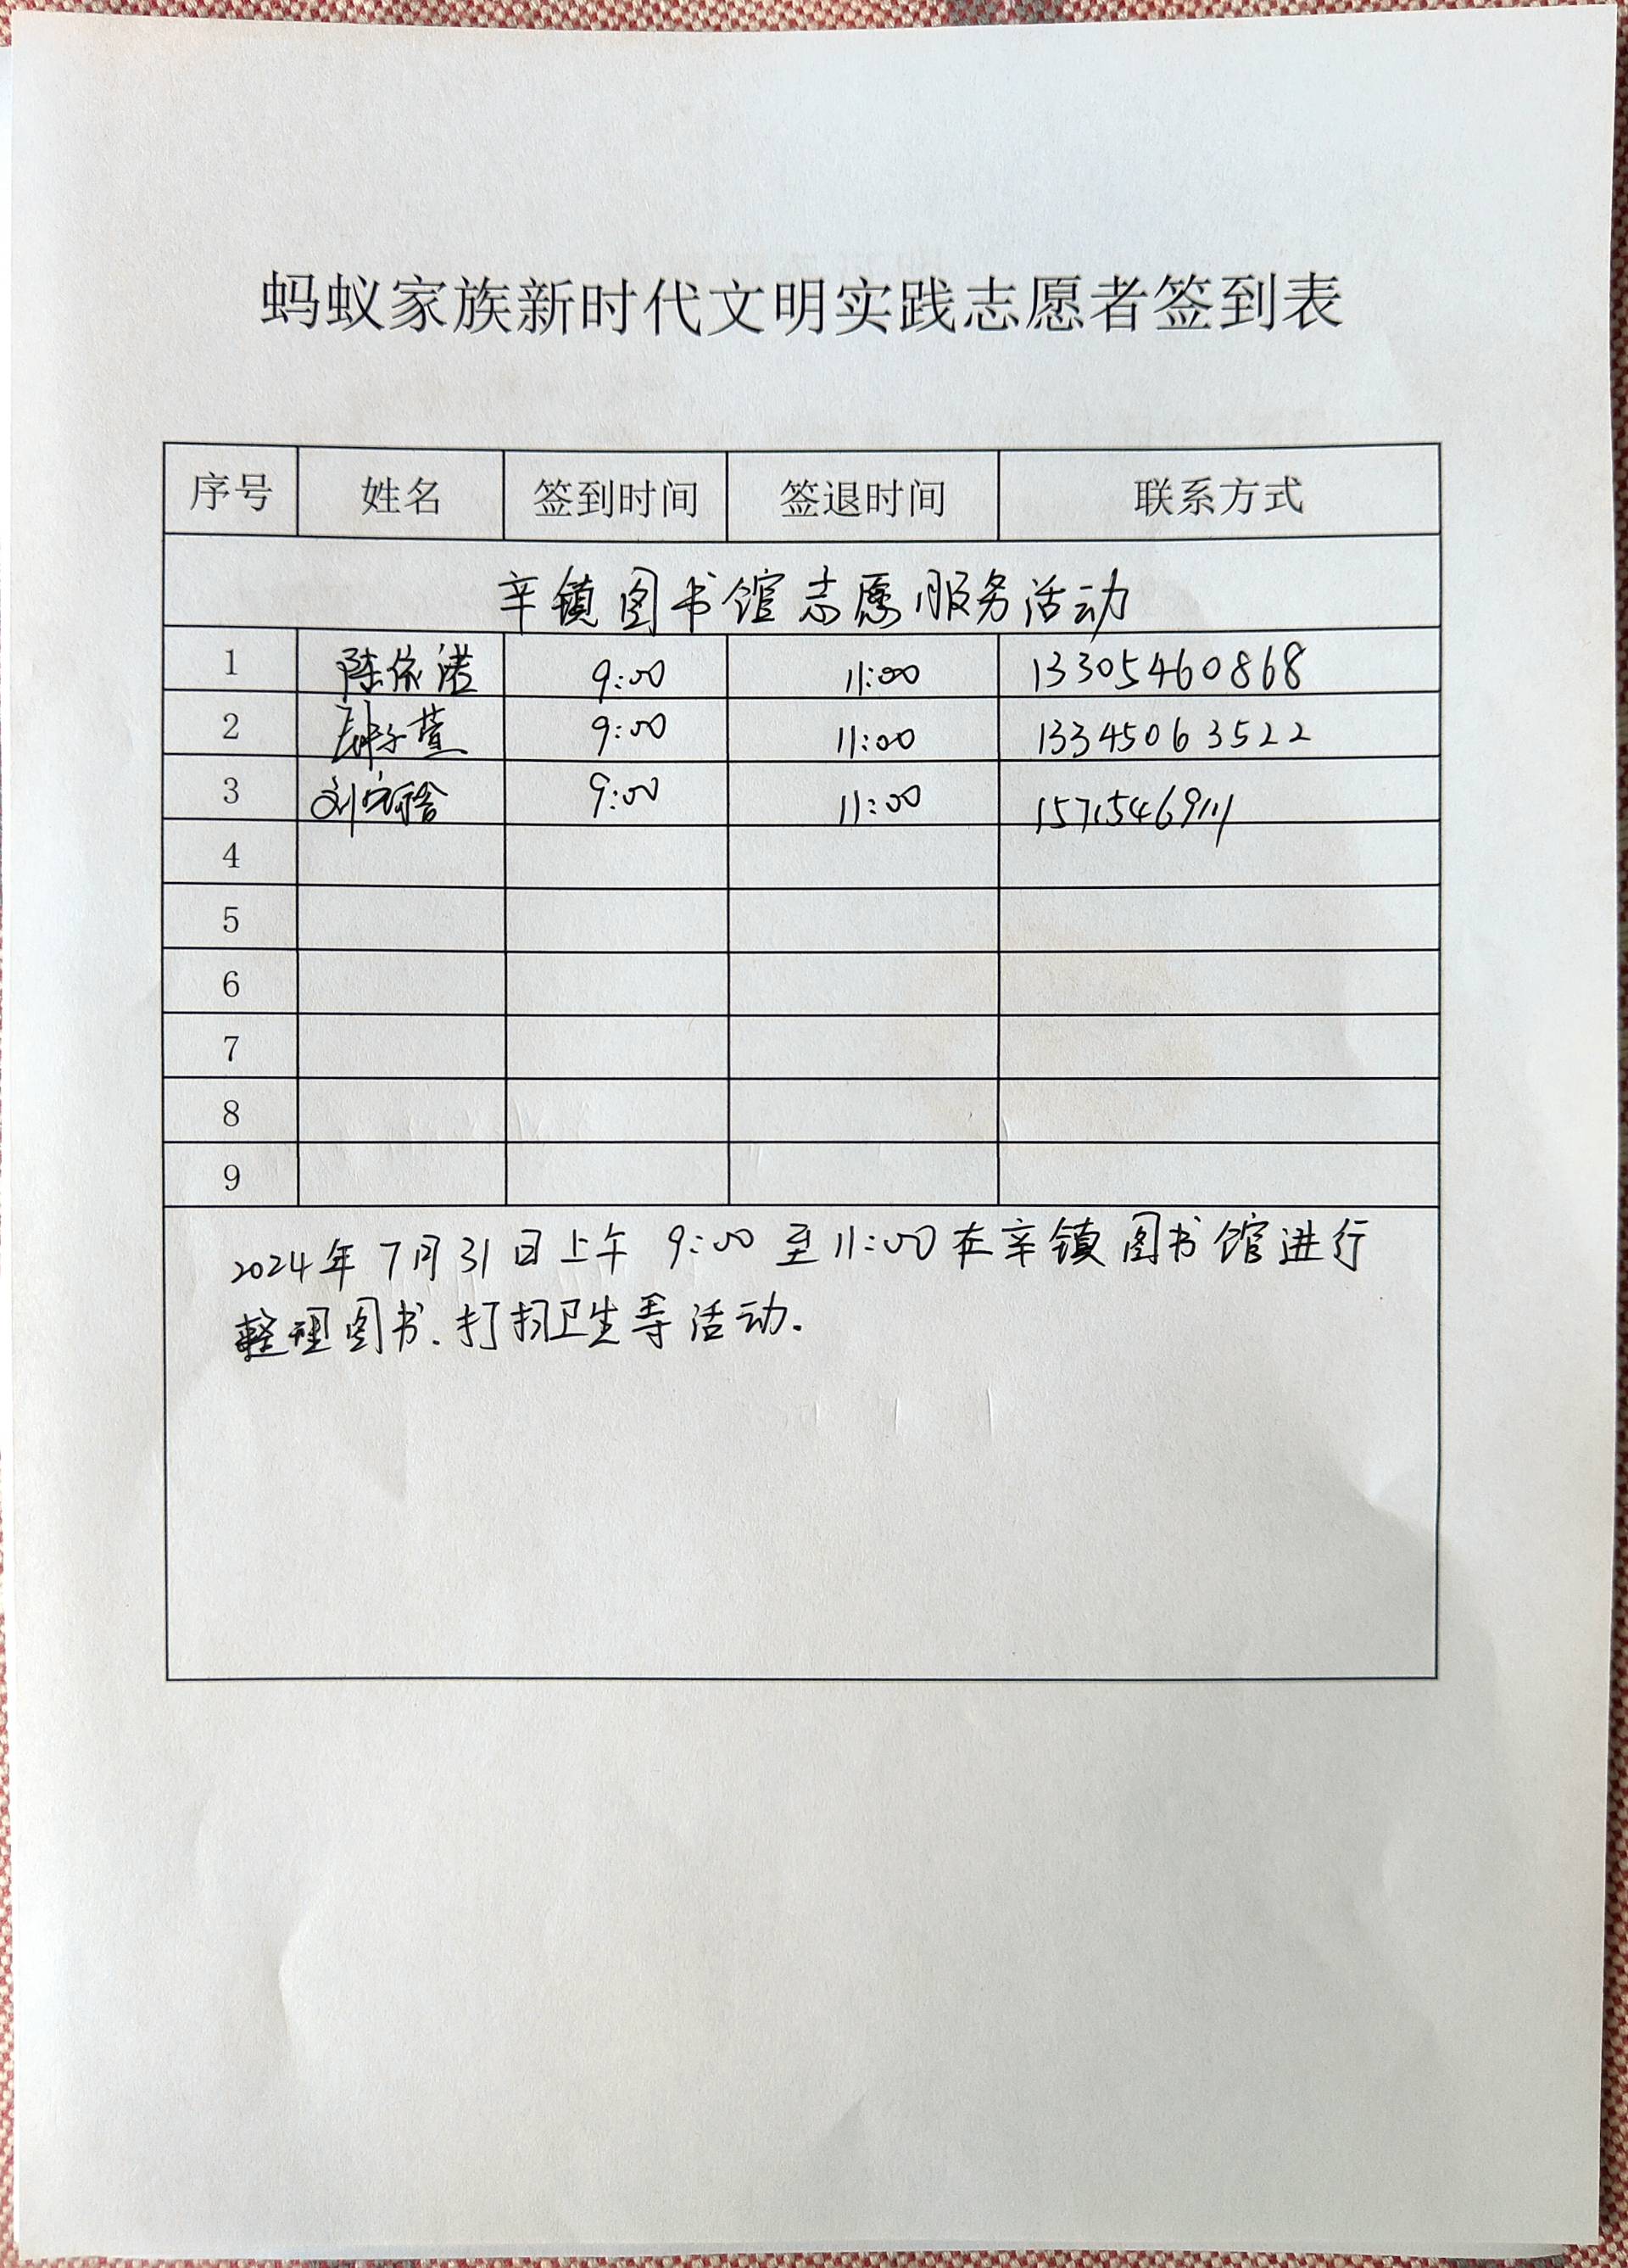 蚂蚁家族新时代文明实践志愿者签到表
序号 姓名 签到时间 签退时间 联系方式
辛镇图书馆志愿服务活动
1 陈依诺 9:00 11:00 13305460868
2 子萱 9:00 11:00 13345063522
3 刘 9:00 11:00 15715469111
4
5
6
7
8
9
2024年7月31日上午 9:00 至11:00在辛镇图书馆进行
整理图书、打扫卫生等活动.